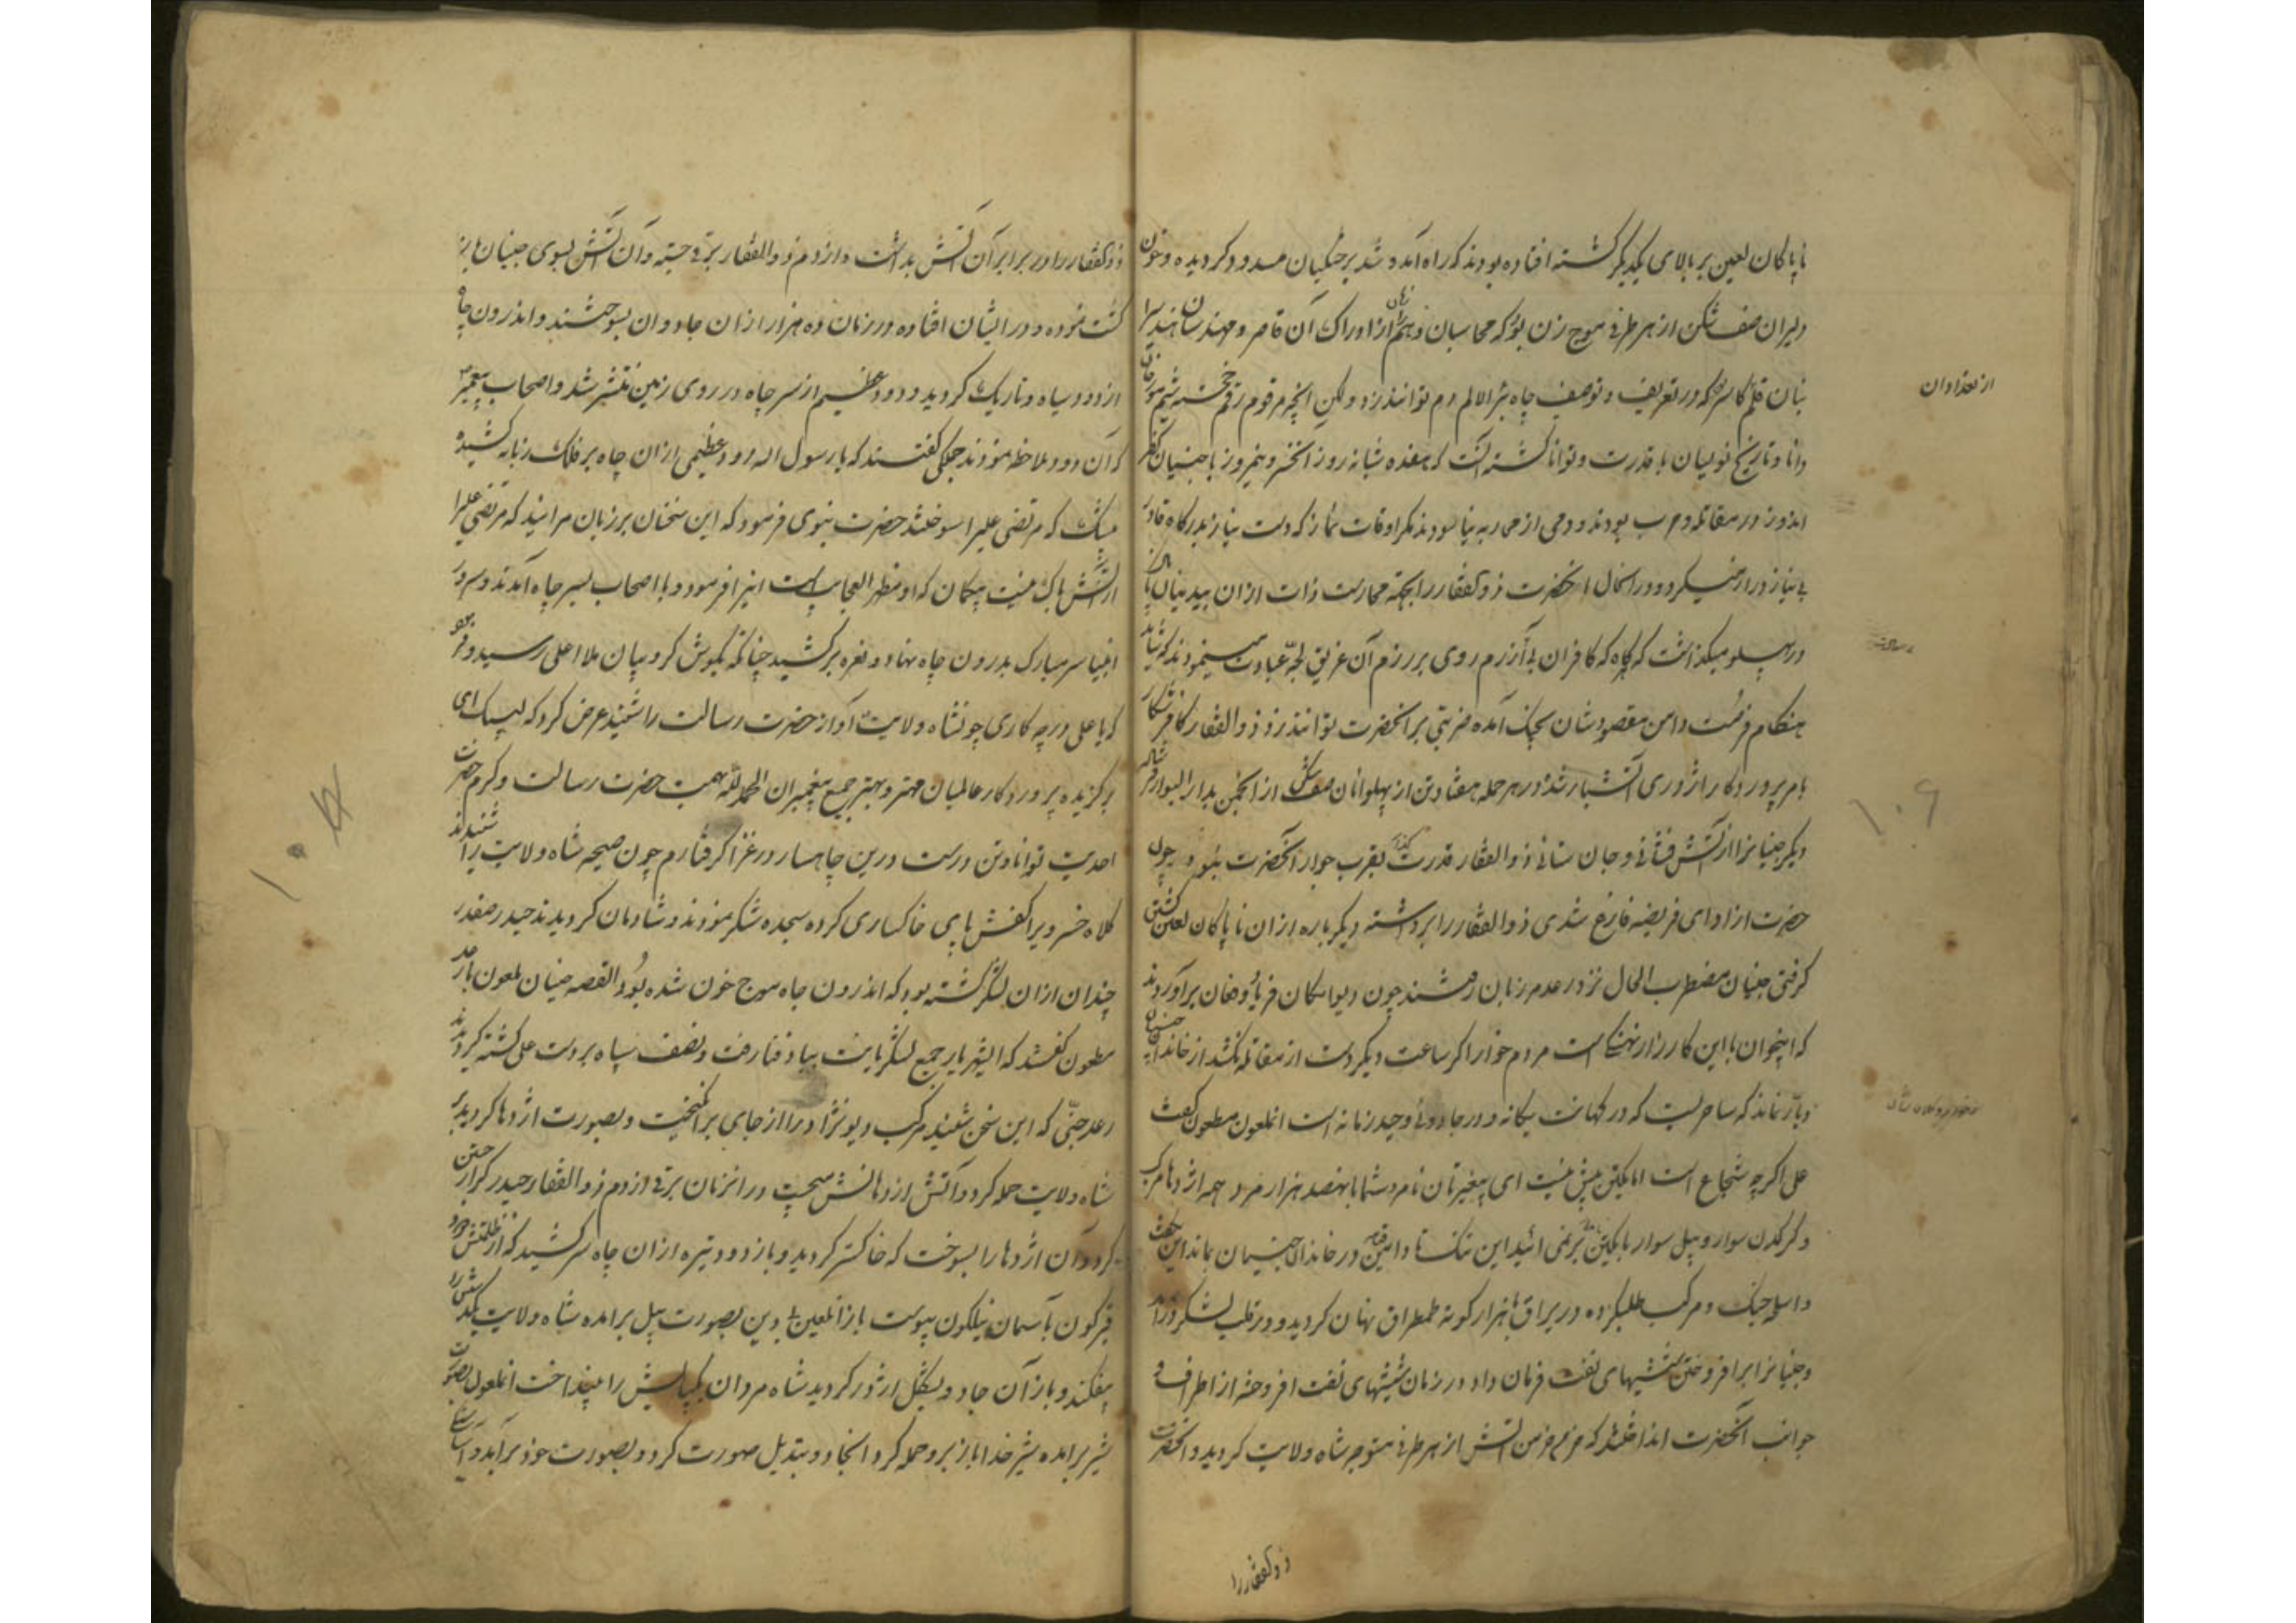 ناپاکان لعین بر بالای یکدیگر کشته افتاده بودند که راه آمد و شد بر جنگیان مسدود کردیده و خون
دلیران صف شکن از هر طرفی موج زن بود که محاسبان وهم از ادراک آن قاصر و مهندسان
بنان قلم کاسر که در تعریف و توصیف چاه بئر الالم دم توانند زد ولکن آنچه مرقوم رقم خجسته شیم
دانا و تاریخ نویسان با قدرت و توانا کشته آنست که هفده شبانه روز آن خسرو نیمروز با جنیان
اندوز در مقاتله و حرب بودند و دمی از محاربه نیاسودند مکر اوقات نماز که دست نیاز بدرکاه قادر
بی نیاز دراز میکرد و در آنحال آنحضرت ذوالفقار را بجهة ممارست ذات از آن بیدینان
در پهلو میکذاشت که کاه کاه کافران بی آزرم روی بر رزم آن غریق لجّه عبادت مینمودند که شاید
هنکام فرصت دامن مقصودشان بچنک آمده ضربتی بر آنحضرت توانند زد ذوالفقار کافر شکار
بامر پروردکار اژدری آتشبار شده در هر حمله هفتاد تن از پهلوانان صف شکن از انجمن بدار البوار
دیکر جنیانرا از آتش فشانی و جان ستانی ذوالفقار قدرت کذر بقرب جوار آنحضرت نبود و چون
حضرت از ادای فریضه فارغ شدی ذوالفقار را برداشته دیکر باره از آن ناپاکان لعین کشتن
کرفتی جنیان مضطرب الحال نزد رعد مرزبان رفتند چون دیوانکان فریاد و فغان برآوردند
که اینجوان با این کارزار نهنکی است مردم خوار اکر ساعت دیکر دست از مقاتله نکشد از خاندان جنیان
دیار نماند که ساحریست که در کهانت یکانه و در جادوئی وحید زمانه است آنملعون مطعون کفت
علی اکرچه شجاع است اما یکتن بیش نیست ای بیغیرتان نامرد شما با نهصد هزار مرد همه اژدها مرکب
و کرکدن سوار و پیل سوار با یکتن برنمی آئید این ننک تا دامن قیامت در خاندان جنیان بماند این بکفت
و اسلحه جنک و مرکب طلبکرده در یراق هزار کونه طمطراق نهان کردید و در قلب لشکر درآمد
و جنیانرا بر افروختن شیشهای نفت فرمان داد در زمان شیشهای نفت افروخته از اطراف و
جوانب آنحضرت انداختند که خرمن خرمن آتش از هر طرفی متوجه شاه ولایت کردید و آنحضرت
ذوالفقار را
از تعداد آن
۱۰۹
ذوالفقار را در برابر آن آتش بداشت و از دم ذوالفقار برقی جسته و آن آتش بسوی جنیان باز
کشت نموده و در ایشان افتاده در زمان ده هزار از آن جادوان بسوختند و اندرون چاه
از دود سیاه و تاریک کردید و دود عظیم از سر چاه در روی زمین منتشر شد و اصحاب پیغمبر
که آن دود ملاحظه نمودند جملکی کفتند که یا رسول الله دود عظیمی از آن چاه بر فلک زبانه کشیده
بیشک که مرتضی علیرا سوختند حضرت نبوی فرمود که این سخنان بر زبان مرانید که مرتضی علیرا
از آتش باک نیست بیکمان که او مظهر العجایب است اینرا فرمود و با اصحاب بسر چاه آمدند و سرور
انبیا سر مبارک بدرون چاه نهاد و نعره برکشید چنانکه بکوش کروبیان ملا اعلی رسید و فرمود
که یا علی در چه کاری چون شاه ولایت آواز حضرت رسالت را شنید عرض کرد که لبیک ای
برکزیده پروردکار عالمیان مهتر و بهتر جمیع پیغمبران الحمدلله بهمت حضرت رسالت و کرم حضرت
احدیت توانا و تن درست درین چاهسار در غزا کرفتارم چون صیحه شاه ولایت را شنیدند
کلاه خسرویرا کفش پای خاکساری کرده سجده شکر نمودند و شادمان کردیدند حیدر صفدر
چندان از آن لشکر کشته بود که اندرون چاه موج خون شده بود القصه جنیان ملعون با رعد
مطعون کفتند که ایشهریار جمیع لشکریانت بباد فنا رفت و نصف سپاه بردست علی کشته کردیدند
رعد جنّی که این سخن شنید مرکب دیو نژاد را از جای برانکیخت و بصورت اژدها کردید بر
شاه ولایت حمله کرد و آتش از دهانش میجست در آنزمان برقی از دم ذوالفقار حیدر کرار جستن
کرد و آن اژدها را بسوخت که خاکستر کردید و باز دود تیره از آن چاه سر کشید که از ظلمتش
قیرکون بآسمان نیلکون پیوست باز آنلعین بی دین بصورت پیل برآمده شاه ولایت
بیفکند و باز آن جادو بشکل اژدر کردید شاه مردان یکبالش را بینداخت آنملعون بصورت
شیر برآمده شیر خدا باز برو حمله کرد آنجادو تبدیل صورت کرد و بصورت خود برآمد و